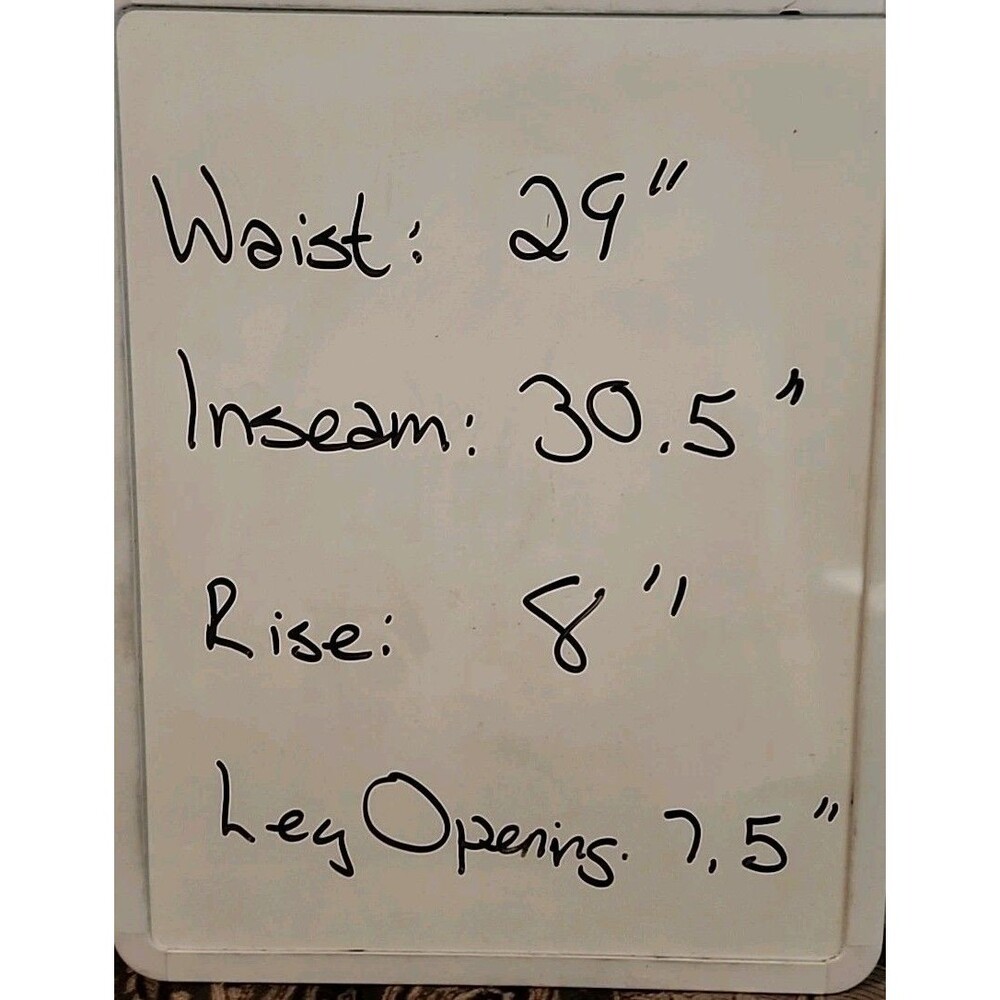 Waist: 29"
Inseam: 30.5"
Rise: 8"
Leg Opening. 7.5"